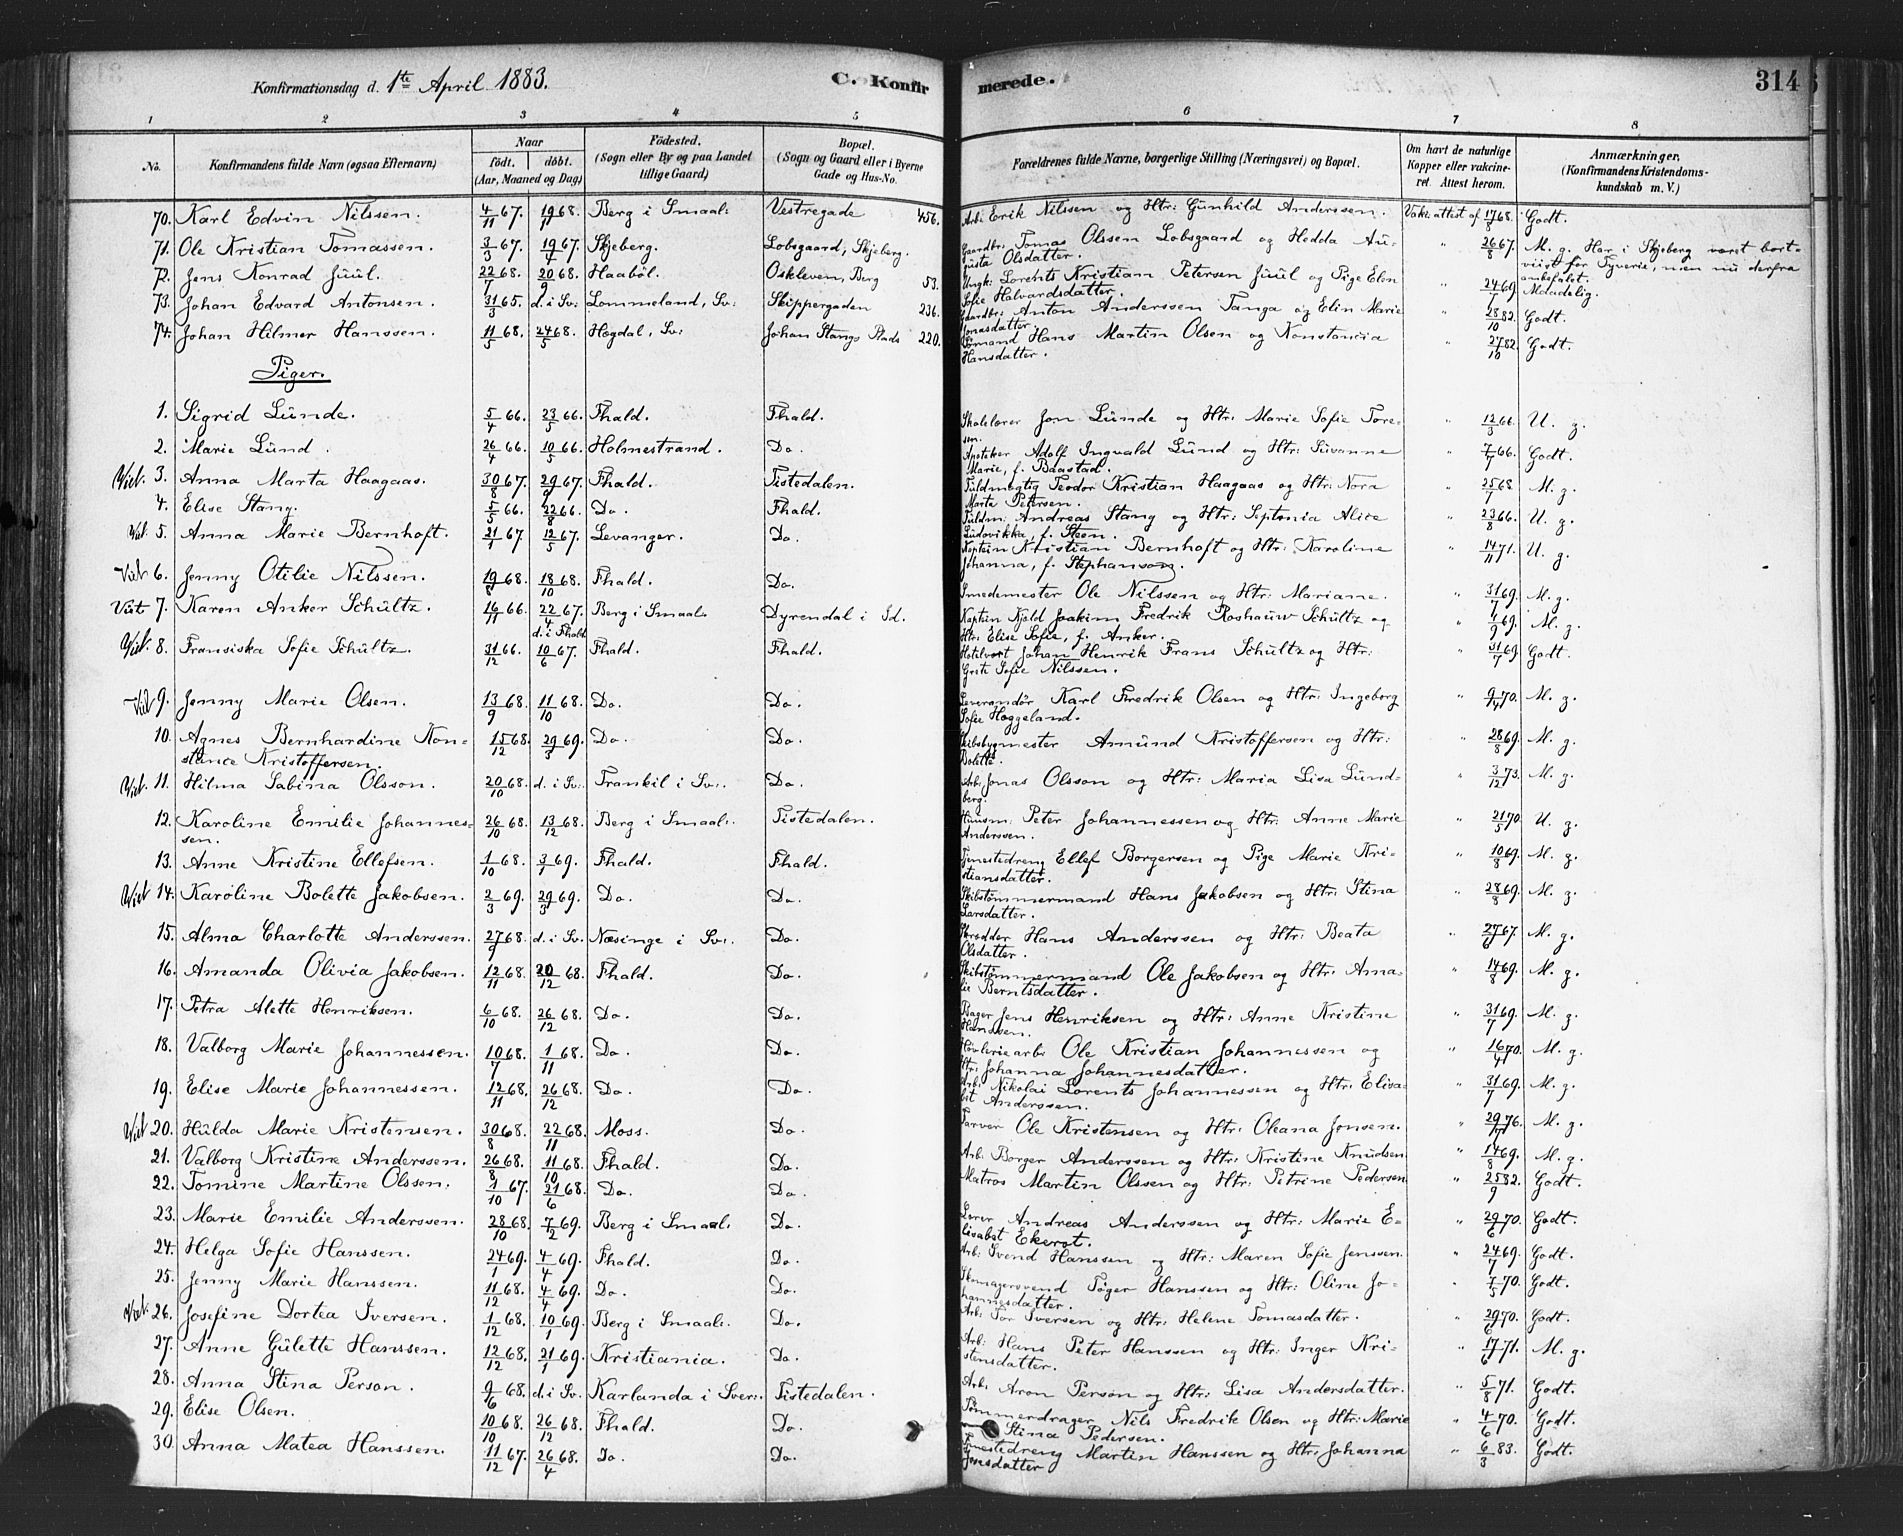 Konfirmationsdag d. 1te April 1883.
C. Konfirmerede.
314
1 2 3 4 5 6 7 8
No. Konfirmandens fulde Navn (ogsaa Efternavn) Naar født, døbt. (Aar, Maaned og Dag) Fødested. (Sogn eller By og paa Landet tillige Gaard) Bopæl. (Sogn og Gaard eller i Byerne Gade og Hus-No. Forældrenes fulde Navne, borgerlige Stilling (Næringsvei) og Bopæl. Om havt de naturlige Kopper eller vakcineret. Attest herom. Anmærkninger, (Konfirmandens Kristendomskundskab m. V.)
70. Karl Edvin Nilssen. 4/11 67. Berg i Smaal: Vestregade 456. Arb: Erik Nilssen og Htr: Gunhild Anderssen. Vakc: attest af 17/8 68. Godt.
71. Ole Kristian Tomassen. 3/3 67. 19/7 67. Skjeberg. Lobsgaard, Skjeberg. Gaardbr: Tomas Olssen Lobsgaard og Hedda Augusta Olsdatter. " 26/8 67. M. g. Har i Skjeberg været bortviist for Tyverie, men nu derfra anbefalet.
72. Jens Konrad Juul. 22/7 68. 20/9 68. Haabøl. Oskleven, Berg 53. Ungk: Lorents Kristian Petersen Juul og Pige Elen Sofie Halvardsdatter. " 24/7 69. Maadelig.
73. Johan Edvard Antonsen. 31/3 65. d. i Sv: Lommeland, Sv: Skippergaden 236. Gaardbr: Anton Anderssen Tanga og Elin Marie Jonasdatter " 28/10 82. Godt.
74. Johan Hilmer Hanssen. 11/5 68. 24/5 68. Hogdal, Sv: Johan Stangs Plads 220. Tømand Hans Martin Olsen og Konstancia Hansdatter. " 27/10 82. Godt.
Piger.
1. Sigrid Lunde. 5/4 66. 23/5 66. Fhald. Fhald. Skolelærer Jon Lunde og Htr: Marie Sofie Toresen. " 12/3 66. U. g.
2. Marie Lund. 26/4 66. 10/5 66. Holmestrand. Do. Apoteker Adolf Ingvald Lund og Htr: Suvanne Marie, f. Baastad. " 7/7 66. Godt.
Viet. 3. Anna Marta Haagaas. 30/8 67. 29/9 67. Fhald. Tistedalen. Fuldmægtig Teodor Kristian Haagaas og Htr: Nora Marta Petersen. " 25/7 68. M. g.
4. Elise Stang. 5/5 66. 22/8 66. Do. Fhald. Fuldm: Andreas Stang og Htr: Septonia Alice Ludovikka, f. Steen. " 23/8 66. U. g.
Viet. 5. Anna Marie Bernhoft. 21/1 67. 12/5 67. Levanger. Do. Kaptein Kristian Bernhoft og Htr: Karoline Johanna, f. Stephanson. " 14/11 71. U. g.
Viet 6. Jenny Otilie Nilssen. 19/8 68. 18/10 68. Fhald. Do. Smedemester Ole Nilssen og Htr: Mariane. " 31/7 69. M. g.
Viet 7. Karen Anker Schultz. 16/11 66. 22/4 67. d. i Fhald Berg i Smaal: Dyrendal i Id. Kaptein Kjeld Joakim Fredrik Roshauw Schultz og Htr: Elise Sofie, f. Anker. " 4/9 69. M. g.
Viet. 8. Fransiska Sofie Schultz. 31/12 66. 10/6 67. Fhald. Fhald. Hotelvert Johan Henrik Frans Schultz og Htr: Grete Sofie Nilssen. " 31/7 69. Godt.
Viet 9. Jenny Marie Olsen. 13/9 68. 11/10 68. Do. Do. Leverandør Karl Fredrik Olsen og Htr: Ingeborg Sofie Heggeland. " 9/4 70. M. g.
10. Agnes Bernhardine Konstance Kristoffersen. 15/12 68. 29/3 69. Do. Do. Skibsbygmester Amund Kristoffersen og Htr: Bolette. " 28/8 69. M. g.
Viet. 11. Hilma Sabina Olsson. 20/10 68. d. i Sv: Trankil i Sv: Do. Arb: Jonas Olsson og Htr: Maria Lisa Lundberg. " 3/12 73. M. g.
12. Karoline Emilie Johannessen. 26/10 68. 13/12 68. Berg i Smaal: Tistedalen. Huusm: Peter Johannessen og Htr: Anne Marie Anderssen. " 21/5 70. U. g.
13. Anne Kristine Ellefsen. 1/10 68. 3/1 69. Fhald. Fhald. Tjenestedreng Ellef Borgersen og Pige Marie Kristiansdatter. " 10/8 69. M. g.
Viet 14. Karoline Bolette Jakobsen. 2/3 69. 29/3 69. Do. Do. Skibstømmermand Hans Jakobsen og Htr: Stina Larsdatter. " 28/8 69. M. g.
15. Alma Charlotte Anderssen. 27/9 68. d. i Sv. Næsinge i Sv: Do. Skrædder Hans Anderssen og Htr: Beata Olsdatter. " 27/6 67. M. g.
16. Amanda Olivia Jakobsen. 12/11 68. 20/12 68. Fhald. Do. Skibstømmermand Ole Jakobsen og Htr: Amalie Berntsdatter. " 14/8 69. M. g.
17. Petra Alette Henriksen. 6/10 68. 26/12 68. Do. Do. Bager Jens Henriksen og Htr: Anne Kristine Hanssen. " 31/7 69. M. g.
18. Valborg Marie Johannessen. 10/7 68. 1/11 68. Do. Do. Høvleriearb: Ole Kristian Johannessen og Htr: Johanna Johannesdatter. " 16/4 70. M. g.
19. Elise Marie Johannessen. 12/11 68. 26/12 68. Do. Do. Arb: Nikolai Lorents Johannessen og Htr: Elisabet Anderssen. " 31/7 69. M. g.
Viet 20. Hulda Marie Kristensen. 30/8 68. 22/11 68. Moss. Do. Farver Ole Kristensen og Htr: Oleana Jonsen. " 29/7 76. M. g.
21. Valborg Kristine Anderssen. 26/8 68. 11/10 68. Fhald. Do. Arb: Borger Anderssen og Htr: Kristine Knudsen " 14/8 69. M. g.
22. Tomine Martine Olssen. 1/10 67. 21/6 68. Do. Do. Matros Martin Olssen og Htr: Petrine Pedersen " 25/9 82. Godt.
23. Marie Emilie Anderssen. 28/10 68. 7/2 69. Berg i Smaal: Do. Lærer Andreas Anderssen og Htr: Marie Elisabet Ekerot. " 29/6 70. Godt.
24. Helga Sofie Hanssen. 24/1 69. 4/4 69. Fhald. Do. Arb: Svend Hanssen og Htr: Maren Sofie Jenssen. " 24/7 69. Godt.
25. Jenny Marie Hanssen. 11/12 68. 4/4 69. Do. Do. Skomagersvend Tøger Hanssen og Htr: Oline Johannesdatter. " 7/5 70. Godt.
Viet. 26. Josefine Dortea Iversen. 1/12 68. 10/1 69. Berg i Smaal: Do. Arb: Tor Iversen og Htr: Helene Tomasdatter. " 29/6 70. Godt.
27. Anne Gulette Hanssen. 12/12 68. 21/1 69. Kristiania. Do. Arb: Hans Peter Hanssen og Htr: Inger Kristensdatter. " 17/6 71. M. g.
28. Anna Stina Person. 9/6 68. d. i Sv. Karlanda i Sver: Tistedalen. Arb: Aron Person og Htr: Lisa Andersdatter. " 5/8 71. Godt.
29. Elise Olsen. 10/10 68. 26/12 68. Fhald. Do. Tømmerdrager Nils Fredrik Olsen og Htr: Marie Stina Pedersen. " 4/6 70. Godt.
30. Anna Matea Hanssen. 11/12 67. 26/4 68. Do. Do. Tjenestedreng Martin Hanssen og Htr: Johanna Jonsdatter " 6/3 83. Godt.